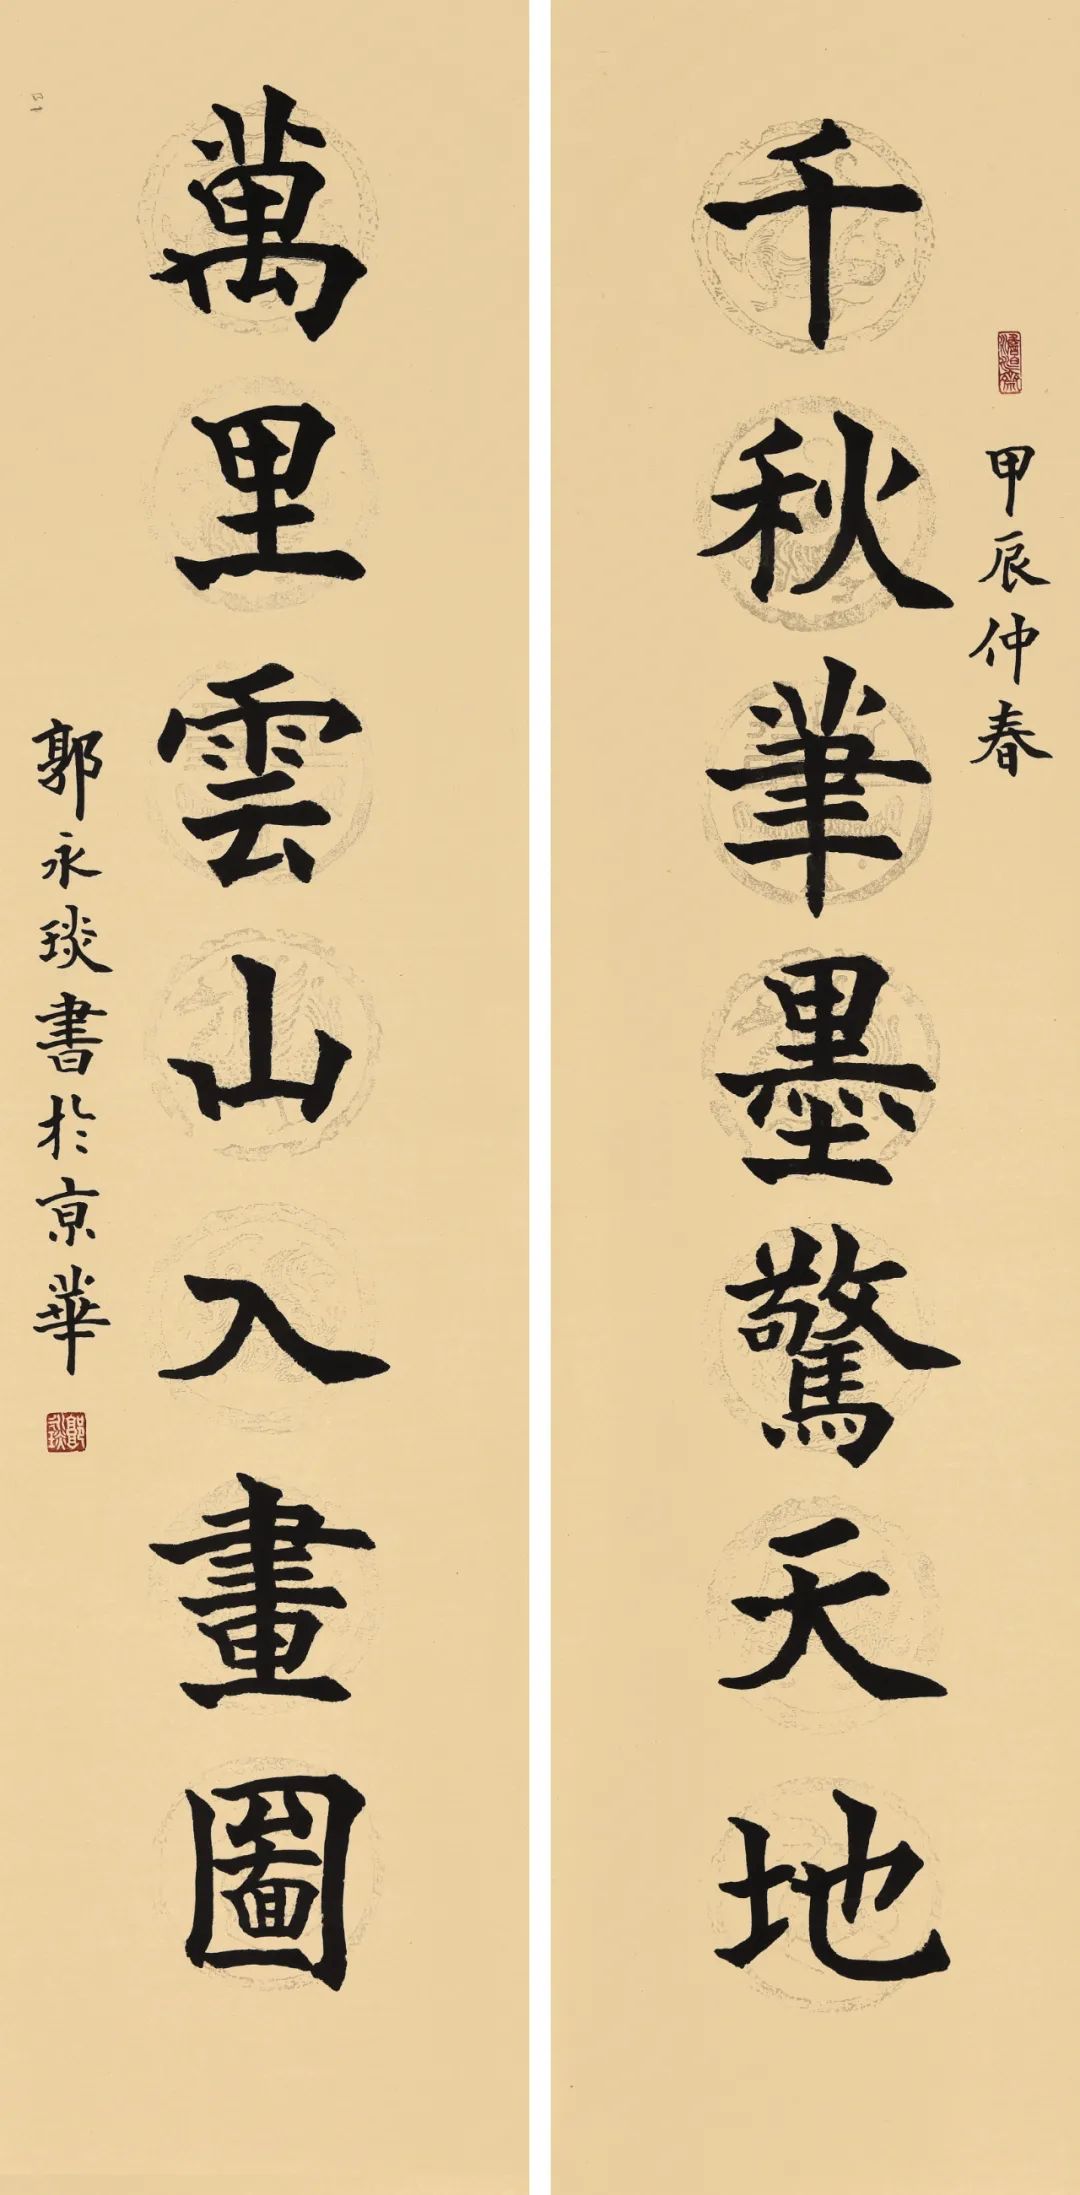 甲辰仲春
千秋筆墨驚天地
萬里雲山入畫圖
郭永琰書於京華